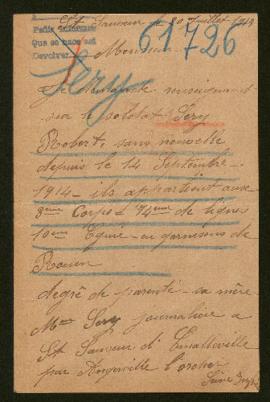 St Sauveur le 20 Juillet 1919
61726
Monsieur
Sery
Je demande renseignement
sur le soldat Sery
Robert, sans nouvelle
depuis le 14 Septembre
1914 - ils appartient aux
8eme Corps d 74eme de lignes
10eme Cgnie - en garnisons de
Rouen
degrê de parenté - sa mère
Mme Sery journalière a
St Sauveur d'Emalleville
par Angerville l'orcher
Seine Infre